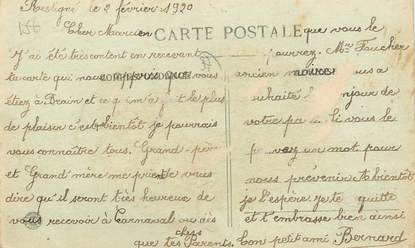 Restigné le 2 février 1920
CARTE POSTALE
Cher Marcien
J'ai été très content en recevant
la carte qui nous vous
étiez à Brain et ce qui m'a le plus
de plaisir c'est bientôt je pourrais
vous connaître tous. Grand-père
et Grand'mère me prient de vous
dire qu'il seront très heureux de
vous recevoir à Carnaval
chers
que tes Parents.
CORRESPONDANCE
que vous le
pourrez. Mme Foucher
ancien
ADRESSE
souhaité bonjour de
votre pa Si vous le
un mot pour
nous prévenir. A bientôt
je l'espère je te quitte
et t'embrasse bien ainsi
Ton petit ami Bernard